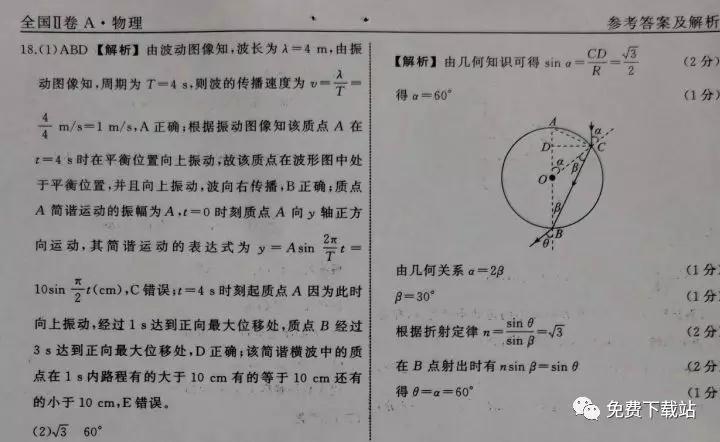 全国Ⅱ卷 A·物理
参考答案及解析
18.(1)ABD 【解析】由波动图像知,波长为 λ=4 m,由振
动图像知,周期为 T=4 s,则波的传播速度为 v=λ/T=
4/4 m/s=1 m/s,A 正确;根据振动图像知该质点 A 在
t=4 s时在平衡位置向上振动,故该质点在波形图中处
于平衡位置,并且向上振动,波向右传播,B 正确;质点
A 简谐运动的振幅为 A,t=0 时刻质点 A 向 y 轴正方
向运动,其简谐运动的表达式为 y=Asin 2π/T t=
10sin π/2 t(cm),C 错误;t=4 s时刻起质点 A 因为此时
向上振动,经过 1 s 达到正向最大位移处,质点 B 经过
3 s 达到正向最大位移处,D 正确;该简谐横波中的质
点在 1 s 内路程有的大于 10 cm 有的等于 10 cm 还有
的小于 10 cm,E 错误。
(2)√3 60°
【解析】由几何知识可得 sin α=CD/R=√3/2 (2 分)
得 α=60° (1 分)
A
α
D
C
α
β
O
β
B
θ
由几何关系 α=2β (1 分)
β=30° (1 分)
根据折射定律 n=sin θ/sin β=√3 (2 分)
在 B 点射出时有 nsin β=sin θ (2 分)
得 θ=α=60° (1 分)
免费下载站